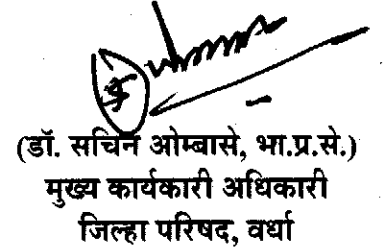 (डॉ. सचिन ओम्बासे, भा.प्र.से.)
मुख्य कार्यकारी अधिकारी
जिल्हा परिषद, वर्धा